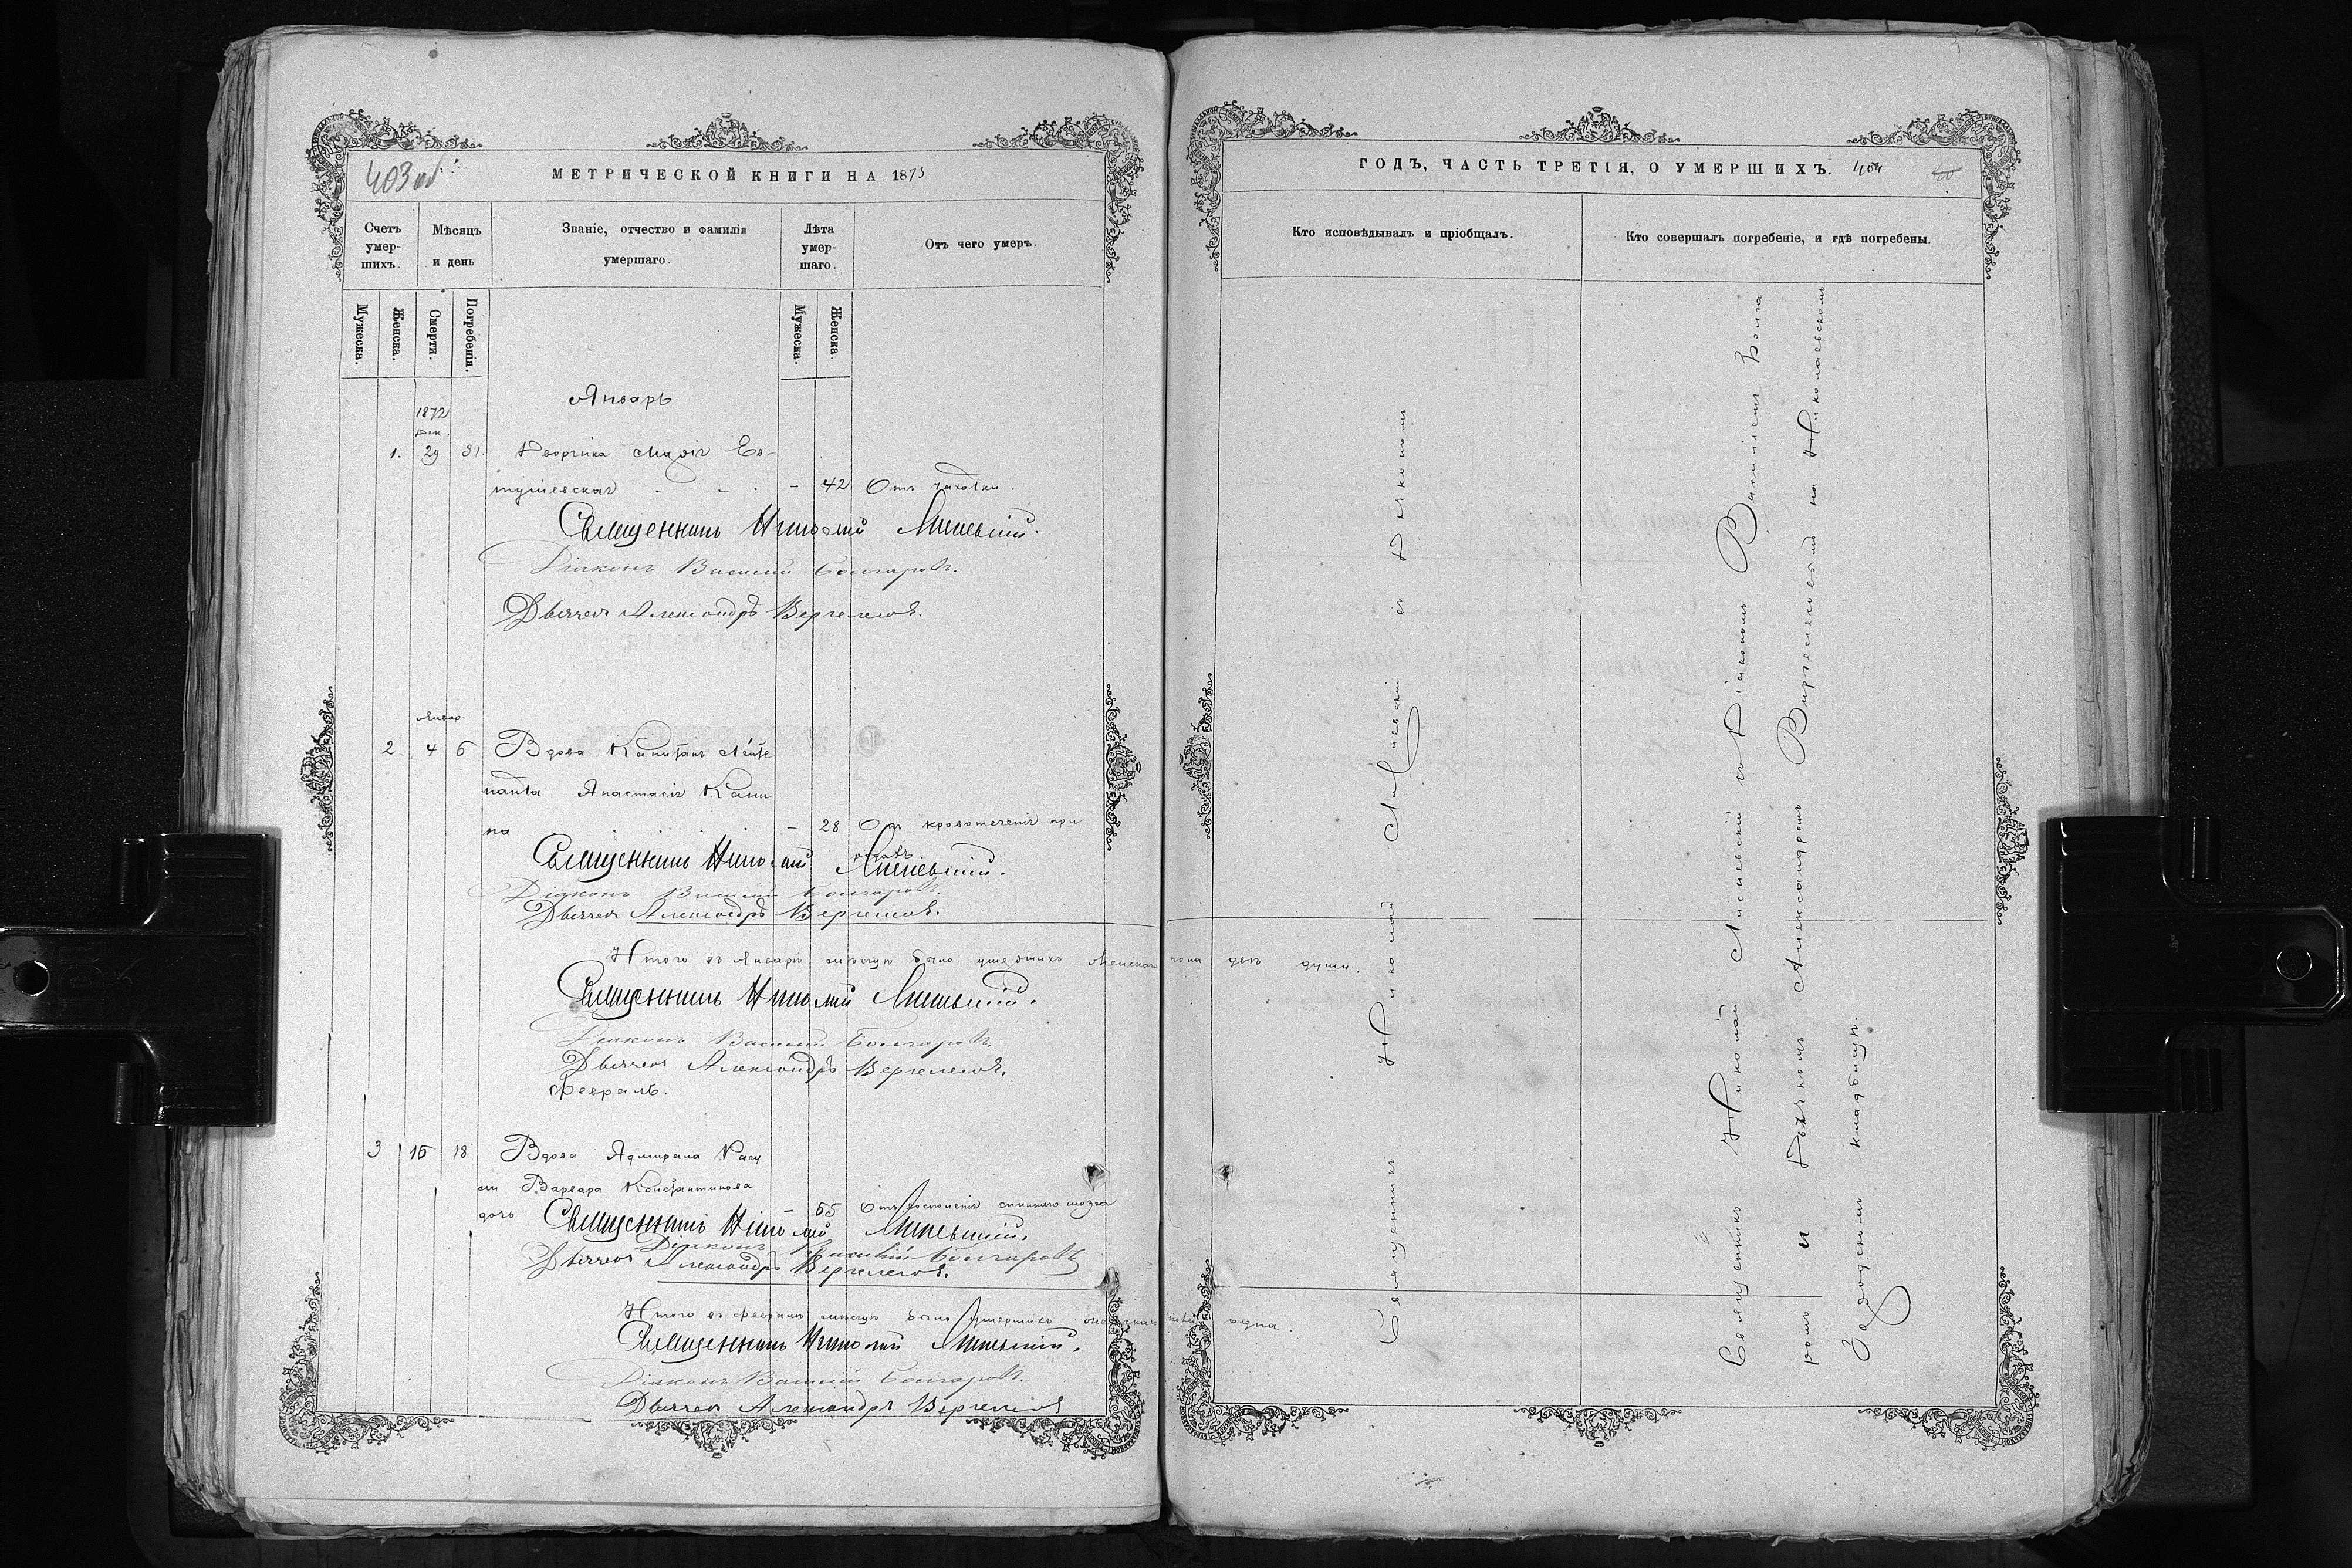 403 об
МЕТРИЧЕСКОЙ КНИГИ НА 1873
Счетъ умер-шихъ.
Мѣсяцъ и день
Званіе, отчество и фамилія умершаго.
Лѣта умер-шаго.
Отъ чего умеръ.
Мужеска.
Женска.
Смерти.
Погребенія.
Мужеска.
Женска.
Январь
1872
Дек.
1. 29 31. Дворянка Марія Ев-
тушевская - 42 Отъ чахотки.
Священникъ Николай
Діаконъ Василій Болгаровъ.
Дьячекъ Александръ Вергелесов.
Январ.
2 4 6 Вдова Капитанъ Лейте
нанта Анастасія
на - 28 Отъ кровотеченія при
родахъ
Священникъ Николай
Діаконъ Василій Болгаровъ.
Дьячекъ Александръ Вергелесов.
Итого въ Январѣ мѣсяцѣ было умершихъ женскаго пола двѣ души.
Священникъ Николай
Діаконъ Василій Болгаровъ.
Дьячекъ Александръ Вергелесов.
Февраль.
3 16 18 Вдова Адмирала
Варвара Константинова
дочь 65 Отъ спиннаго мозга
Священникъ Николай
Діаконъ Василій Болгаровъ
Дьячекъ Александръ Вергелесов.
Итого въ Февралѣ мѣсяцѣ было умершихъ одна.
Священникъ Николай
Діаконъ Василій Болгаровъ.
Дьячекъ Александръ Вергелесов
ГОДЪ, ЧАСТЬ ТРЕТІЯ, О УМЕРШИХЪ. 404
Кто исповѣдывалъ и пріобщалъ.
Кто совершалъ погребеніе, и гдѣ погребены.
Священникъ Николай съ Дьякономъ
Священникъ Николай съ Діакономъ Василіемъ Болга
ромъ и Дьячкомъ Александромъ Вергелесовымъ на Николаевскомъ
Городскомъ кладбищѣ.